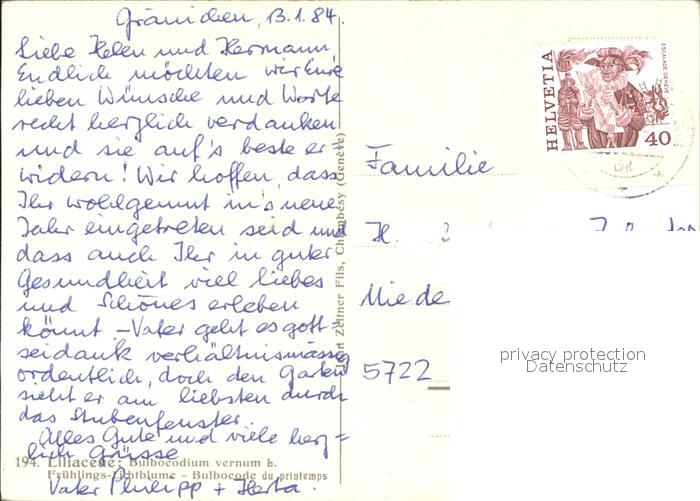 Gränichen, 13.1.84.
Liebe Helen und Hermann
Endlich möchten wir Eure
lieben Wünsche und Worte
recht herzlich verdanken
und sie auf's beste er-
widern! Wir hoffen, dass
Ihr wohlgemut in's neue
Jahr eingetreten seid und
dass auch Ihr in guter
Gesundheit viel liebes
und Schönes erleben
könnt – Vater geht es gott=
seidank verhältnismässig
ordentlich, doch den Garten
sieht er am liebsten durch
das Stubenfenster.
Alles Gute und viele herz=
lich Grüsse
Vater Philipp + Herta.
194. Liliaceae: Bulbocodium vernum L.
Frühlings-Lichtblume - Bulbocode du printemps
Zeltner Fils, Chambésy (Genève)
HELVETIA
ESCALADE GENÈVE
40
Familie
H.
Niede
5722
privacy protection
Datenschutz